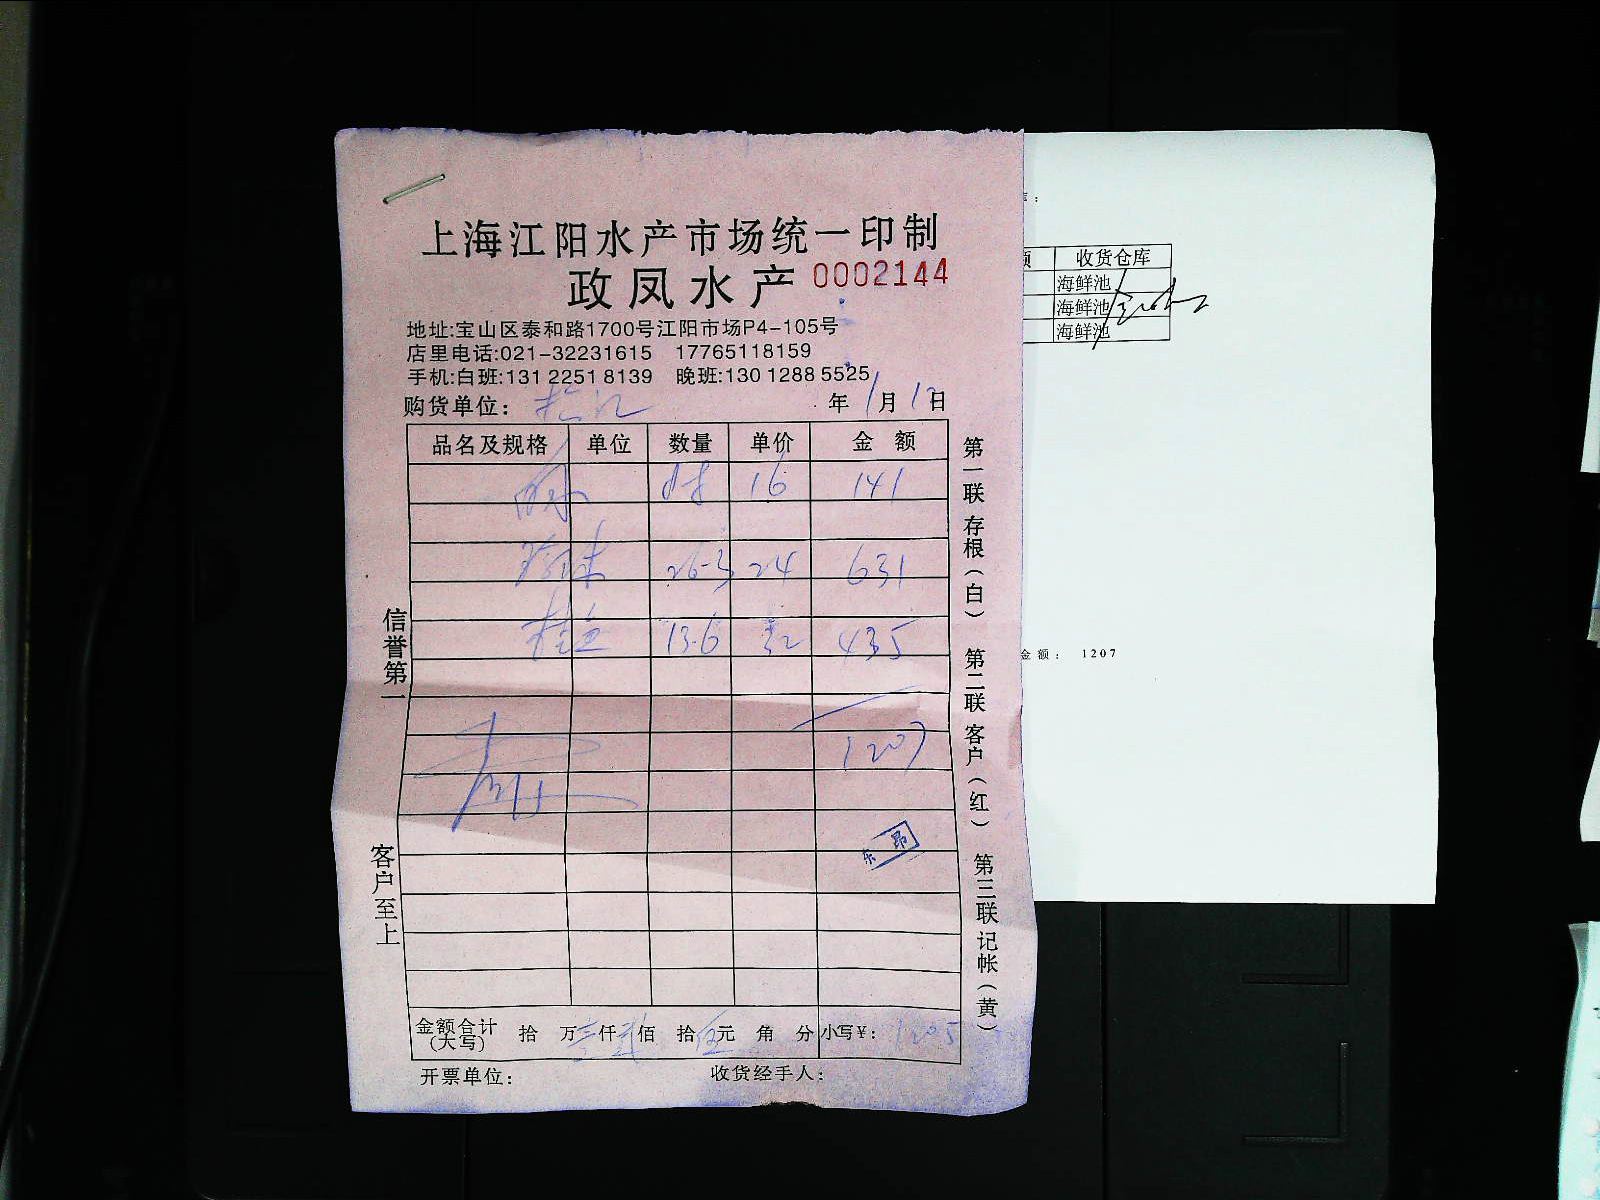 上海江阳水产市场统一印制
政凤水产 0002144
地址:宝山区泰和路1700号江阳市场P4-105号
店里电话:021-32231615 17765118159
手机:白班:131 2251 8139 晚班:130 1288 5525
购货单位: 松江 年 1月 12日
品名及规格 单位 数量 单价 金 额
16 141
26.3 24 631
桂鱼 13.6 32 435
1207
东昂
金额合计(大写) 拾 万 壹仟 贰佰 拾 伍元 角 分 小写¥: 1205
开票单位: 收货经手人:
信誉第一
客户至上
第一联 存根(白) 第二联 客户(红) 第三联 记帐(黄)
收货仓库
海鲜池
海鲜池
海鲜池
金额: 1207